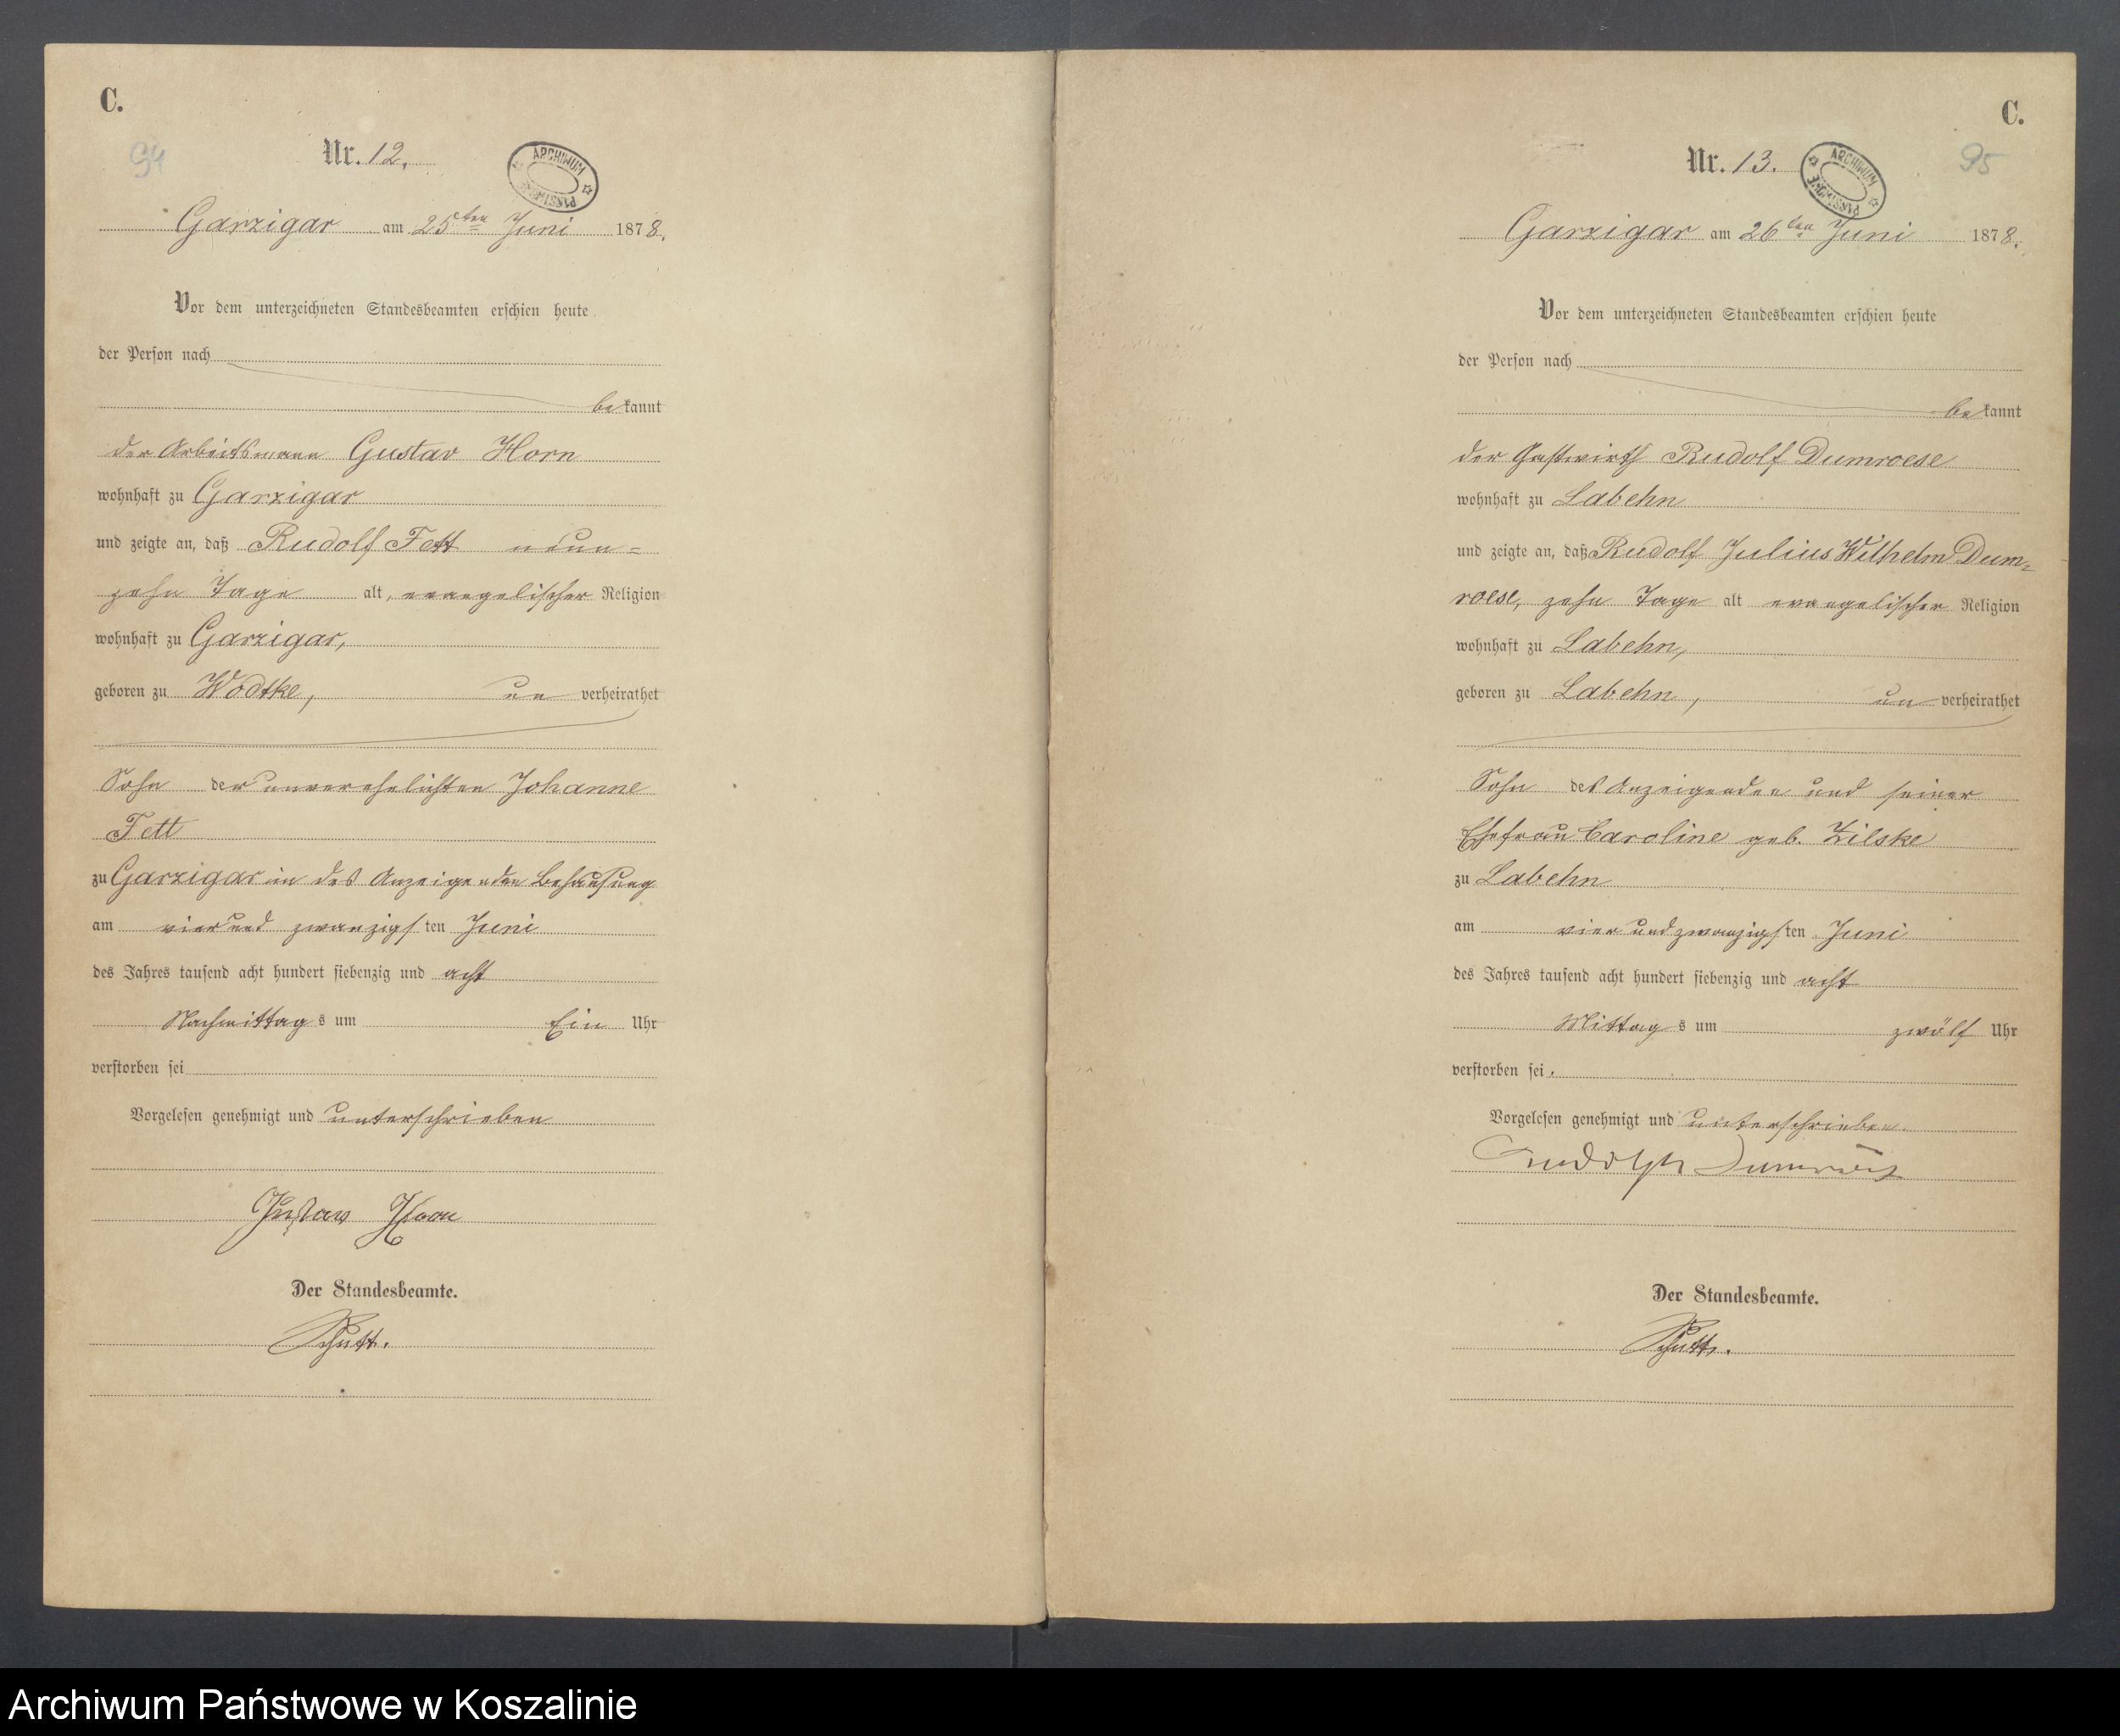 C.
94
Nr. 12.
ARCHIWUM
PAŃSTWOWE
Garzigar am 25ten Juni 1878.
Vor dem unterzeichneten Standesbeamten erschien heute
der Person nach
bekannt
der Arbeitsmann Gustav Horn
wohnhaft zu Garzigar
und zeigte an, daß Rudolf Fett neun=
zehn Tage alt, evangelischer Religion
wohnhaft zu Garzigar,
geboren zu Wodtke, un verheirathet
Sohn der unverehelichten Johanne
Fett
zu Garzigar in des Anzeigenden Behausung
am vier und zwanzigsten Juni
des Jahres tausend acht hundert siebenzig und acht
Nachmittags um Ein Uhr
verstorben sei
Vorgelesen genehmigt und unterschrieben
Gustav Horn
Der Standesbeamte.
Schutt.
C.
95
Nr. 13.
ARCHIWUM
PAŃSTWOWE
Garzigar am 26ten Juni 1878.
Vor dem unterzeichneten Standesbeamten erschien heute
der Person nach
bekannt
der Gastwirth Rudolf Dumroese
wohnhaft zu Labehn
und zeigte an, daß Rudolf Julius Wilhelm Dum=
roese, zehn Tage alt evangelischer Religion
wohnhaft zu Labehn,
geboren zu Labehn, un verheirathet
Sohn des Anzeigenden und seiner
Ehefrau Caroline geb. Zilske
zu Labehn
am vier und zwanzigsten Juni
des Jahres tausend acht hundert siebenzig und acht
Mittags um zwölf Uhr
verstorben sei.
Vorgelesen genehmigt und unterschrieben.
Rudolph Dumroes
Der Standesbeamte.
Schutt.
Archiwum Państwowe w Koszalinie